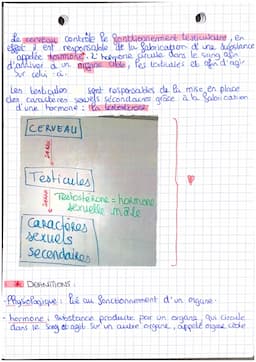 Le cerveau contrôle le fonctionnement testiculaire, en
effet il est responsable de la fabrication d'une substance
appelée hormone. L'hormone circule dans le sang afin
d'arriver à un organe cible, les testicules et afin d'agir
sur celui-ci.
Les testicules sont responsables de la mise en place
des caractères sexuels secondaires grâce à la fabrication
d'une hormone : la testostérone
CERVEAU
Testicules
Testostérone = hormone
sexuelle mâle
Caractères
sexuels
secondaires
DEFINITIONS :
- Physiologique : lié au fonctionnement d'un organe.
- hormone : substance produite par un organe, qui circule
dans le sang et agit sur un autre organe, appelé organe cible